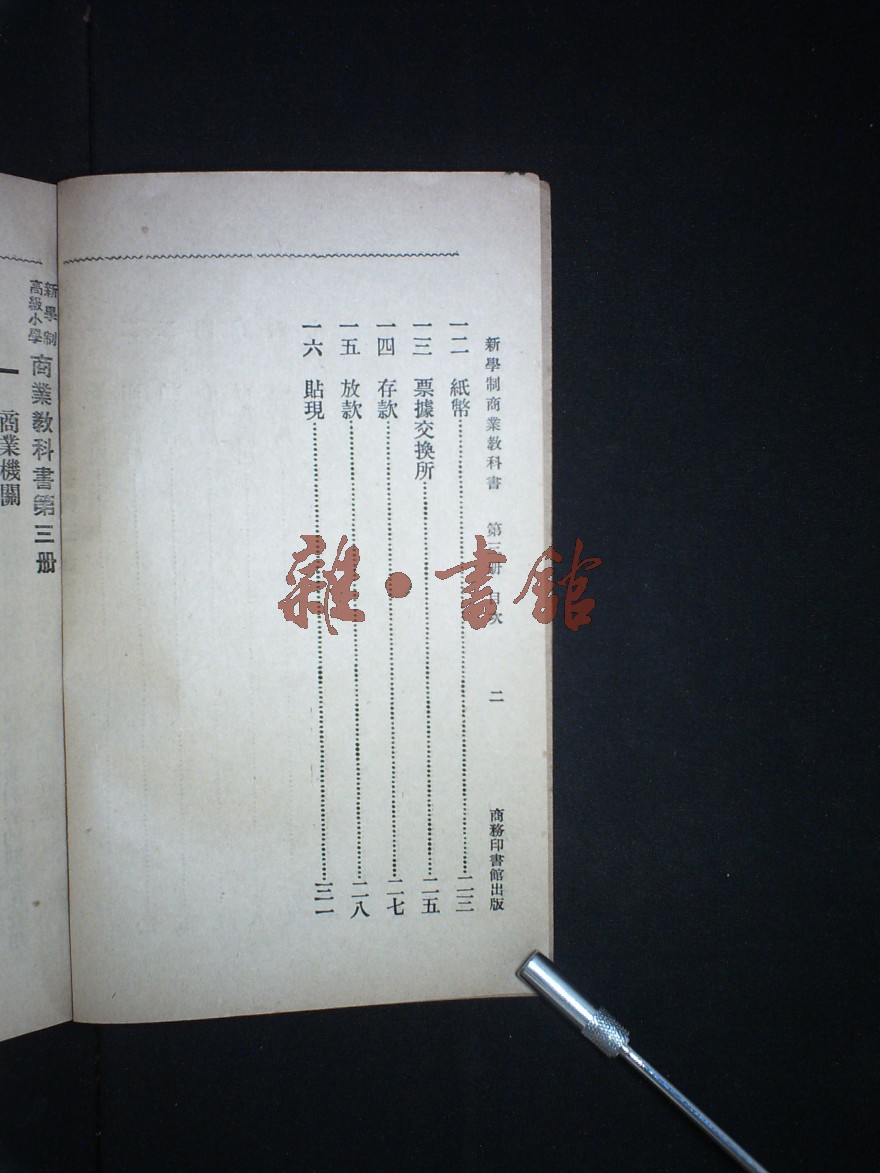 新學制商業教科書 第三册 目次 二 商務印書館出版
一二 紙幣 二三
一三 票據交換所 二五
一四 存款 二七
一五 放款 二八
一六 貼現 三一
新學制
高級小學
商業教科書第三册
一 商業機關
雜·書館